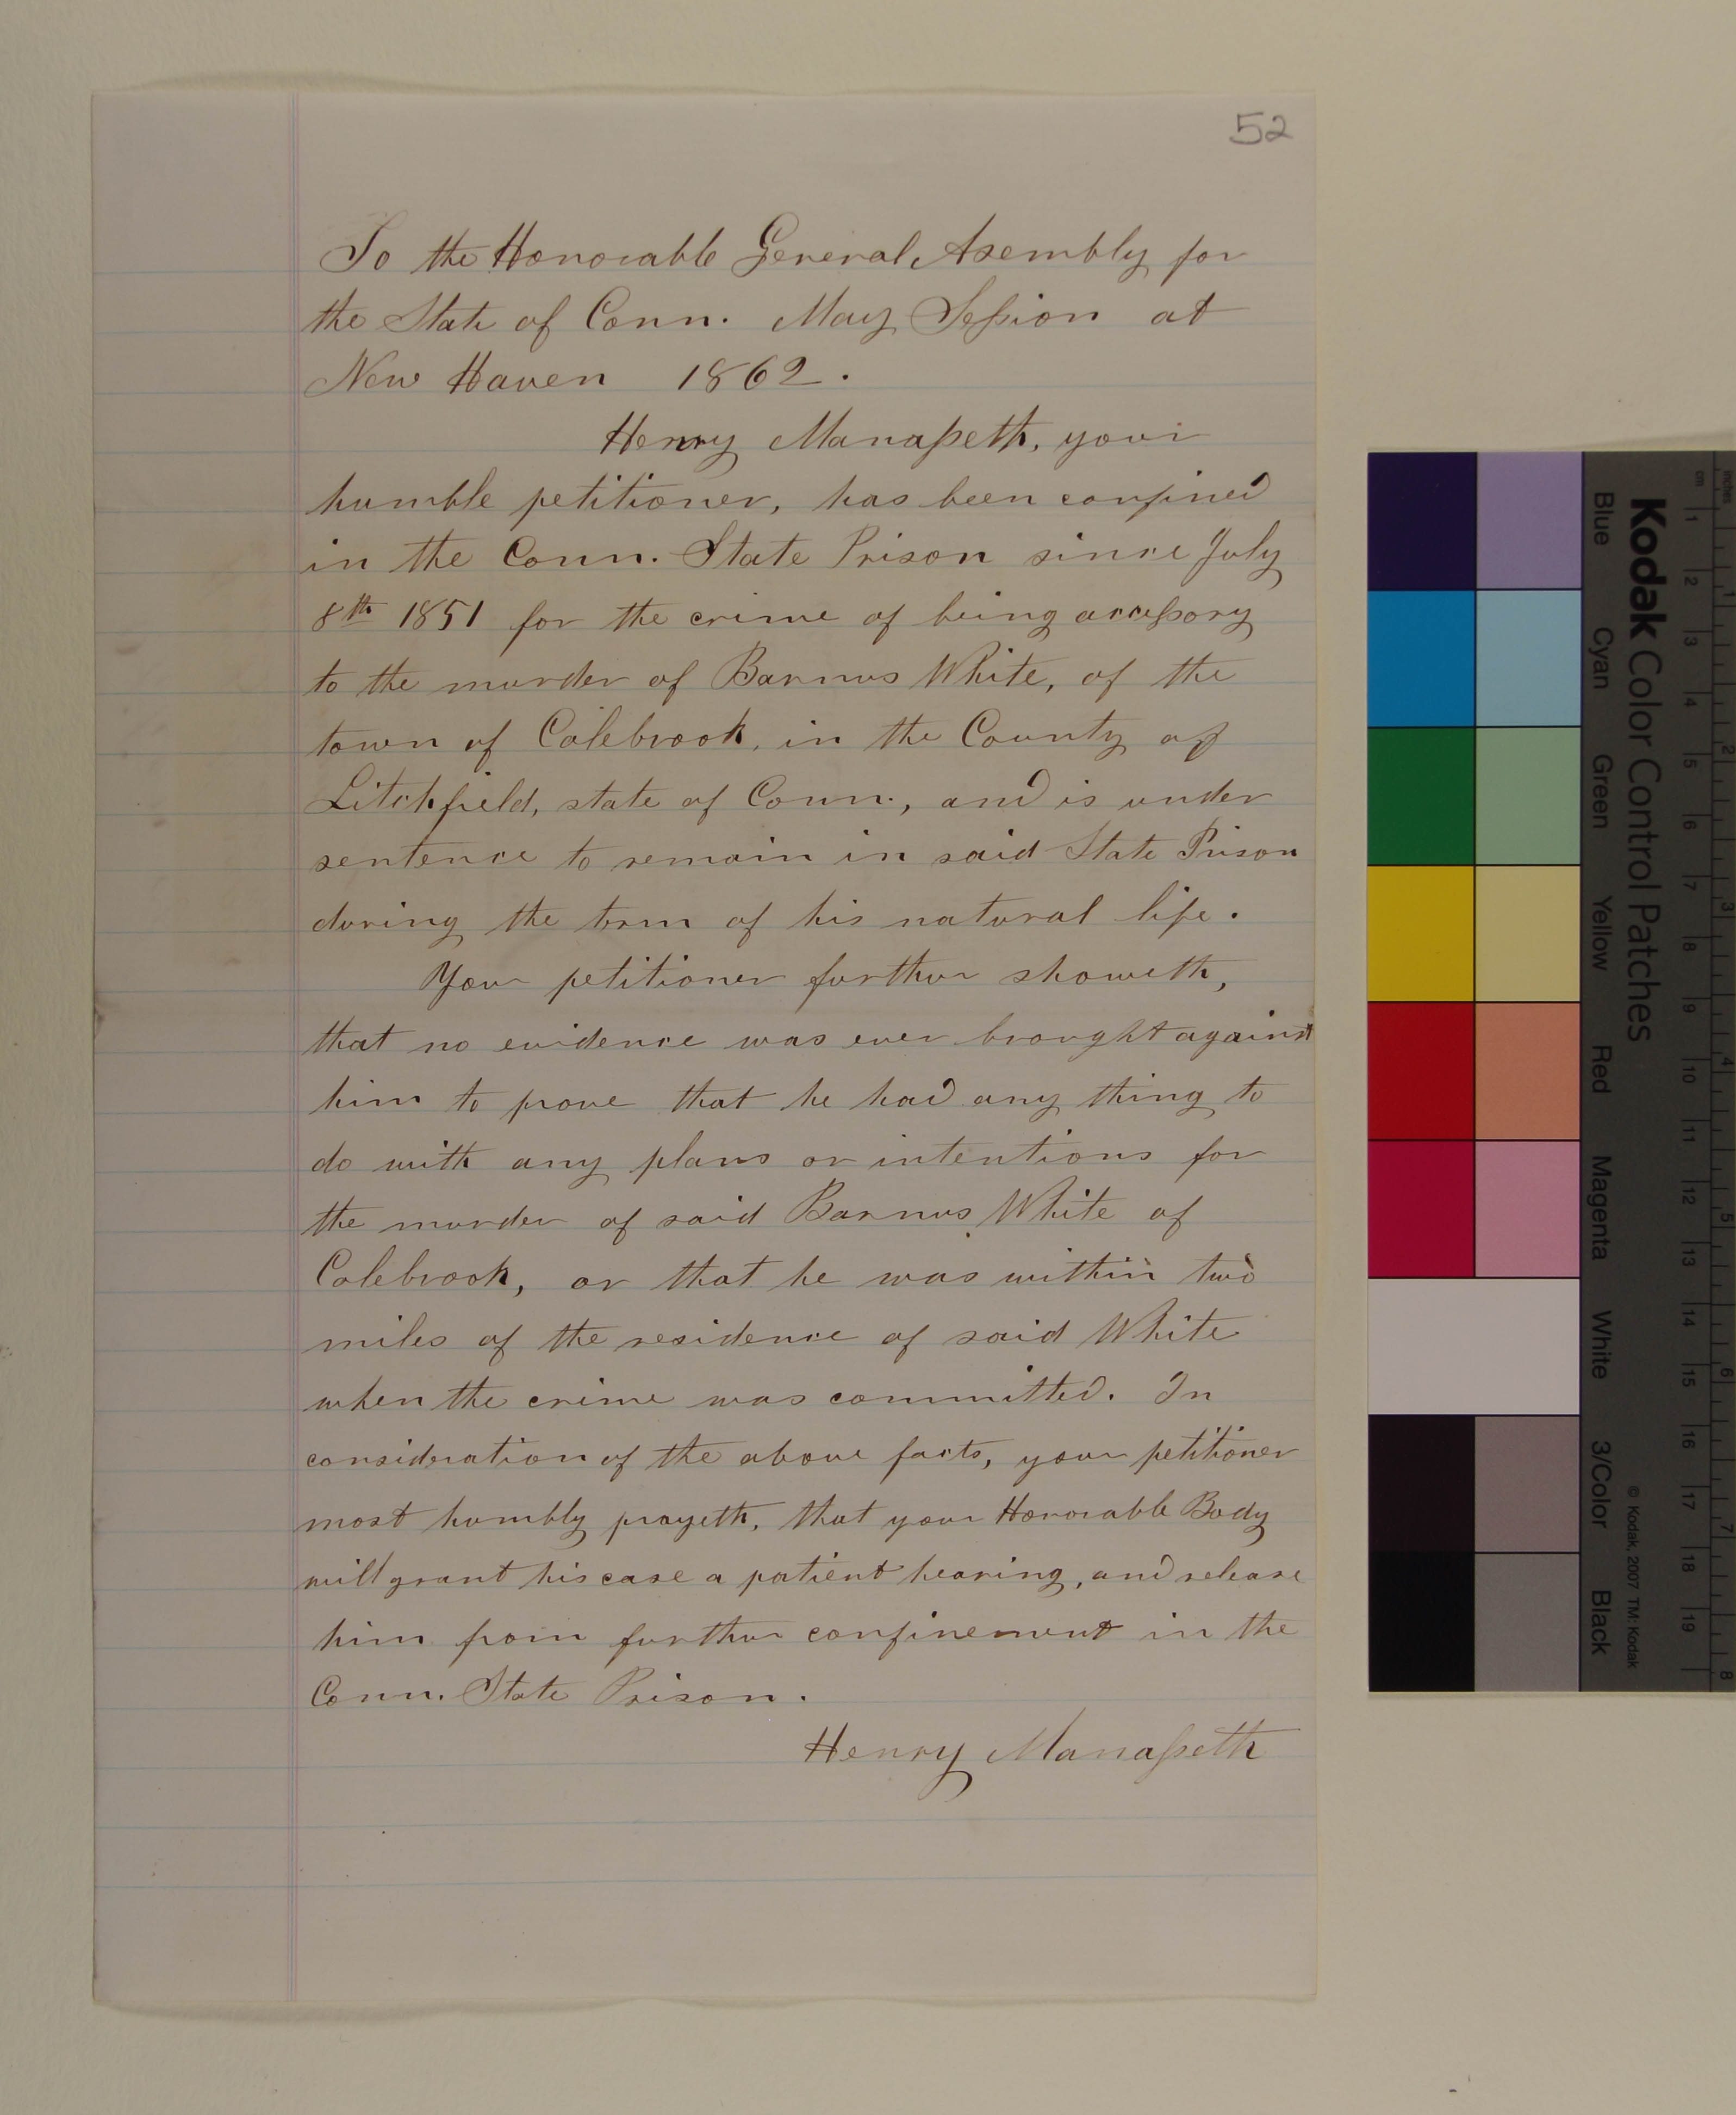 52
To the Honorable General Asembly for
the State of Conn. May Seſsion at
New Haven 1862.
Henry Manaſseth, your
humble petitioner, has been confined
in the Conn. State Prison since July
8th 1851 for the crime of being acceſsory
to the murder of Barnus White, of the
town of Colebrook, in the County of
Litchfield, state of Conn., and is under
sentence to remain in said State Prison
during the term of his natural life.
Your petitioner further showeth,
that no evidence was ever brought against
him to prove that he had any thing to
do with any plans or intentions for
the murder of said Barnus White of
Colebrook, or that he was within two
miles of the residence of said White
when the crime was committed. In
consideration of the above facts, your petitioner
most humbly prayeth, that your Honorable Body
will grant his case a patient hearing, and release
him from further confinement in the
Conn. State Prison.
Henry Manaſseth
Kodak Color Control Patches
© Kodak, 2007 TM: Kodak
Blue Cyan Green Yellow Red Magenta White 3/Color Black
cm 1 2 3 4 5 6 7 8 9 10 11 12 13 14 15 16 17 18 19
inches 1 2 3 4 5 6 7 8